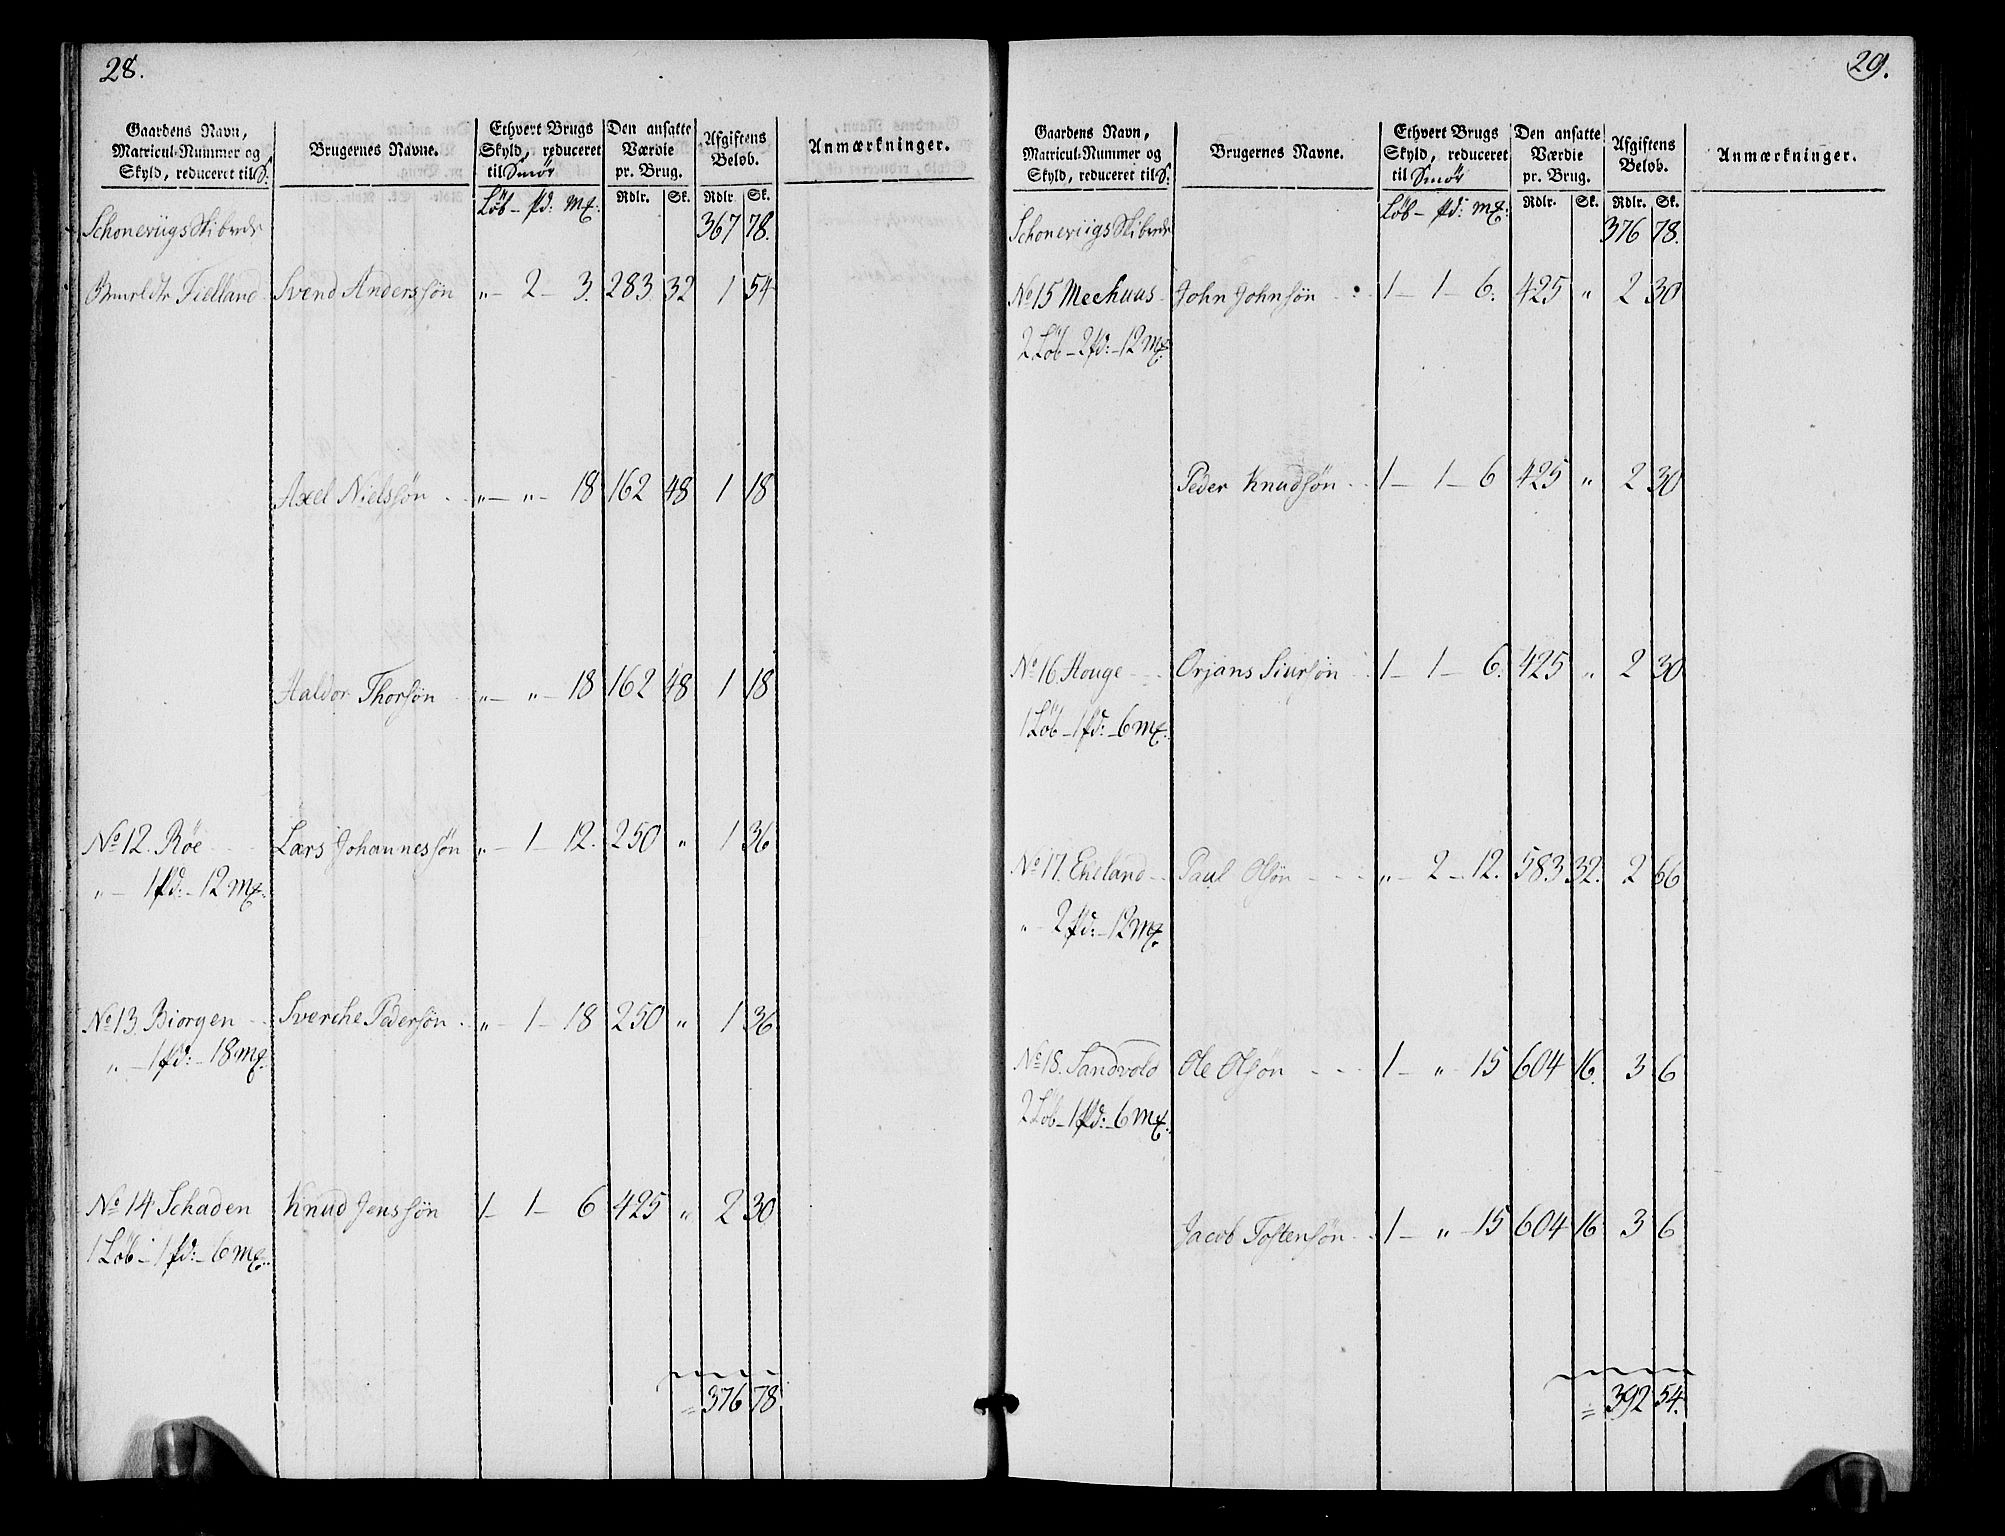 28.
Gaardens Navn, Matricul-Nummer og Skyld, reduceret til S. | Brugernes Navne. | Ethvert Brugs Skyld, reduceret til Smör | Den ansatte Værdie pr. Brug. | Afgiftens Beløb. | Anmærkninger.
Löb - pd: mƺ: | Rdlr. | Sk. | Rdlr | Sk.
Schoneviigs Skibrede 367 78.
Fielland Svend Anderssön „ - 2 - 3. 283 32 1 54
Axel Nielssön „ - „ - 18 162 48 1 18
Haldor Thorsön „ - „ - 18 162 48 1 18
No 12. Röe Lars Johannessön „ - 1 - 12. 250 „ 1 36
„ - 1 pd: - 12 mƺ:
No 13. Biorgen Sverche Pedersön „ - 1 - 18 250 „ 1 36
„ - 1 pd: - 18 mƺ:
No 14. Schaden Knud Jenssön 1 - 1 - 6 425 „ 2 30
1 Löb - 1 pd: - 6 mƺ:
= 376 78
29.
Gaardens Navn, Matricul-Nummer og Skyld, reduceret til S. | Brugernes Navne. | Ethvert Brugs Skyld, reduceret til Smör | Den ansatte Værdie pr. Brug. | Afgiftens Beløb. | Anmærkninger.
Löb - pd: mƺ: | Rdlr. | Sk. | Rdlr. | Sk.
Schoneviigs Skibrede 376 78.
No 15 Meehuus John Johnsön 1 - 1 - 6. 425 „ 2 30
2 Löb - 2 pd: - 12 mƺ:
Peder Knudsön 1 - 1 - 6 425 „ 2 30
No 16. Houge Orjans Siursön 1 - 1 - 6. 425 „ 2 30
1 Löb - 1 pd: - 6 mƺ:
No 17. Eheland Paul Olsön „ - 2 - 12. 583 32. 2 66
„ - 2 pd: - 12 mƺ.
No 18. Sandvold Ole Olsön 1 - „ - 15 604 16. 3 6
2 Löb - 1 pd: - 6 mƺ:
Jacob Tostensön 1 - „ - 15 604 16 3 6
= 392 54.